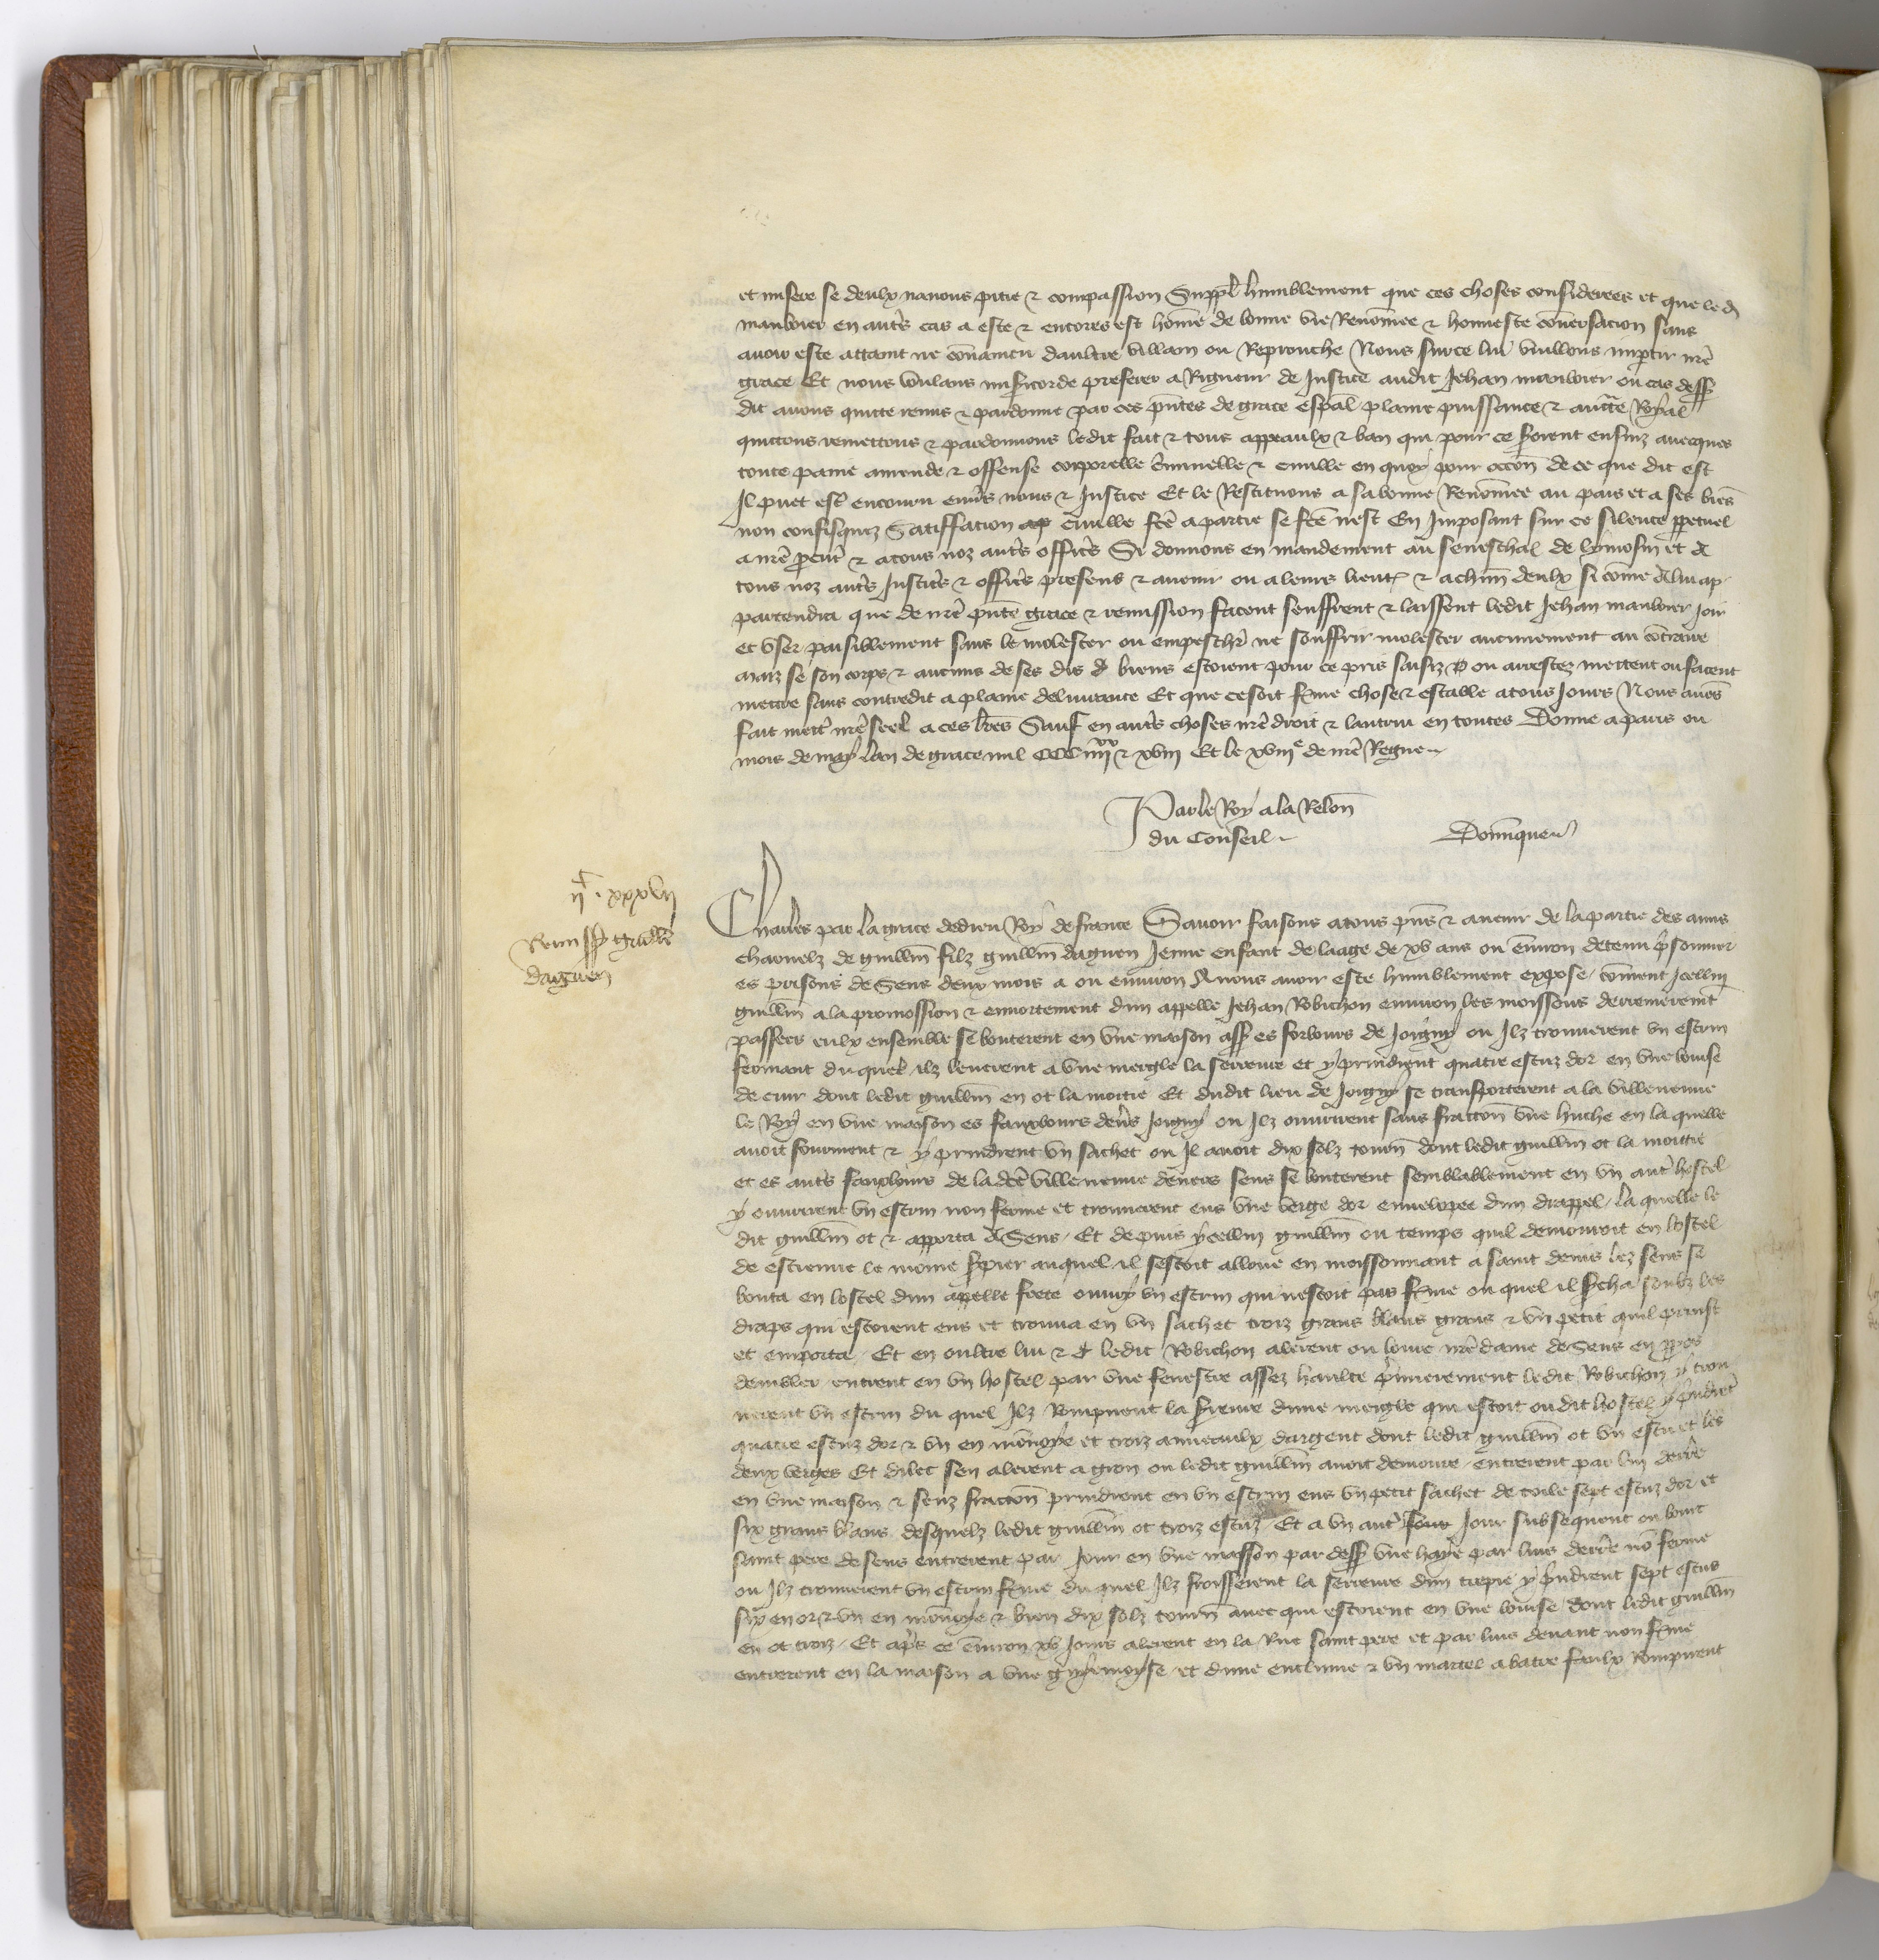 et misere se deulx navons pitie & compassion Suppl humblement que ces choses considerees et que led
mauboier en autrs cas a este & encores est home de bonne vie Renomee & honneste conversacion sans
avoir este attaint ne convaincu daultre villain ou Reprouche Nous sur ce lui vueillons impartir nre
grace Et nous voulans misericorde preferer a Rigueur de Justice audit Jehan mauboier ou cas dess
dit avons quitte remis & pardonne par ces pntes de grace espal plaine puissance & aucte Royal
quittons remettons & pardonnons ledit fait & tous appeaulx & ban qui pour ce seroient ensuiz avecques
toute paine amende & offense corporelle criminelle & civille en quoy pour occon de ce que dit est
Il puet estre encouru envers nous & Justice Et le Restituons a sa bonne Renomee au pais et a ses biens
non confisquez Satisfacion civille fce a partie se fce nest En Imposant sur ce silence perpetuel
a nre procur & a tous noz autrs officrs Si donnons en mandement au seneschal de lymosin et a
tous noz autrs Justicrs & officrs presens & avenir ou a leurs lieux & a chun deulx si come a lui ap
partendra que de nre pnte grace & remission facent seuffrent & laissent ledit Jehan mauboier joir
et user paisiblement sans le molester ou empeschr ne souffrir molester aucunement au contraire
maiz se son corps & aucuns de ses dis biens estoient pour ce pris saisiz ou arrestez mettent ou facent
mettre sans contredit a plaine delivrance Et que ce soit ferme chose & estable a tous Jours Nous avons
fait mettr nre seel a ces lres Sauf en autrs choses nre droit & lautrui en toutes Donne a paris ou
mois de may lan de grace mil CCC iiiixx & xviii Et le xviiie de nre Regne
Par le Roy a la Relon
du Conseil
Dominque
iic xxxvii
Remiss guille
daguen
Charles par la grace de dieu Roy de france Savoir faisons a tous pns & avenir de la partie des amis
charnelz de guillm filz guillm daguen Jeune enfant de laage de xv ans ou environ detenu prisonnier
es prisons de Sens deux mois a ou environ A nous avoir este humblement expose coment Icellui
guillm a la promossion & ennortement dun appelle Jehan Robichon environ les moissons derrenierement
passees eulx ensemble se bouterent en une maison ass es forbours de Joigny ou Ilz trouverent un escrin
fermant du quel ilz leverent a une mergle la serreure et y prindrent quatre escuz dor en une bourse
de cuir dont ledit guillm en ot la moitie Et dudit lieu de Joigny se transporterent a la villeneuve
le Roy en une maison es faurbours devers Joigny ou Ilz ouvrirent sans fraccon une huche en la quelle
avoit fourment & y prindrent un sachet ou Il avoit dix solz tourn dont ledit guillm ot la moittie
et es autrs faurbours de la dce villeneuve devers sens se bouterent semblablement en un autr hostel
y ouvrirent un escrin non ferme et trouverent ens une verge dor envelopee dun drappel la quelle le
dit guillm ot & apporta a Sens Et depuis yeellui guillm ou temps quil demouroit en lostel
de estienne le moine auquel il sestoit alloue en moissonnant a saint denis lez sens se
bouta en lostel dun appelle frere ouvry un escrin qui nestoit pas ferme ou quel il sercha soubz les
draps qui estoient ens et trouva en un sachet troiz grans blans grans & un petit quil prinst
et emporta Et en oultre lui & ledit Robichon alerent ou bourc nre dame de Sens en ppos
dembler entrent en un hostel par une fenestre assez haulte primierement ledit Robichon y trou
verent un escrin du quel Ilz Rompirent la serreure dune mergle qui estoit oudit hostel y prindrent
quatre escuz dor & un en monoye et troiz anneaulx dargent dont ledit guillm ot un escu et les
deux verges Et dilec sen alerent a gron ou ledit guillm avoit demoure entrerent par luis derre
en une maison & senz fraccon prindrent en un escrin ens un petit sachet de toile sept escuz dor et
six grans blans desquelz ledit guillm ot troiz escuz Et a un autr Jour subsequent ou bourc
saint pere de sens entrerent par Jour en une maison par dess une haye par luis derre no ferme
ou Ilz trouverent un escrin ferme du quel Ilz froisserent la serreure dun trepie y prindrent sept escus
six en or & un en monoye & bien dix solz tourn avec qui estoient en une bourse dont ledit guillm
en ot troiz Et aps ce environ xv Jours alerent en la Rue saint pere et par luis devant non ferme
entrerent en la maison a une et dune enclume & un martel a batre faulx Rompirent